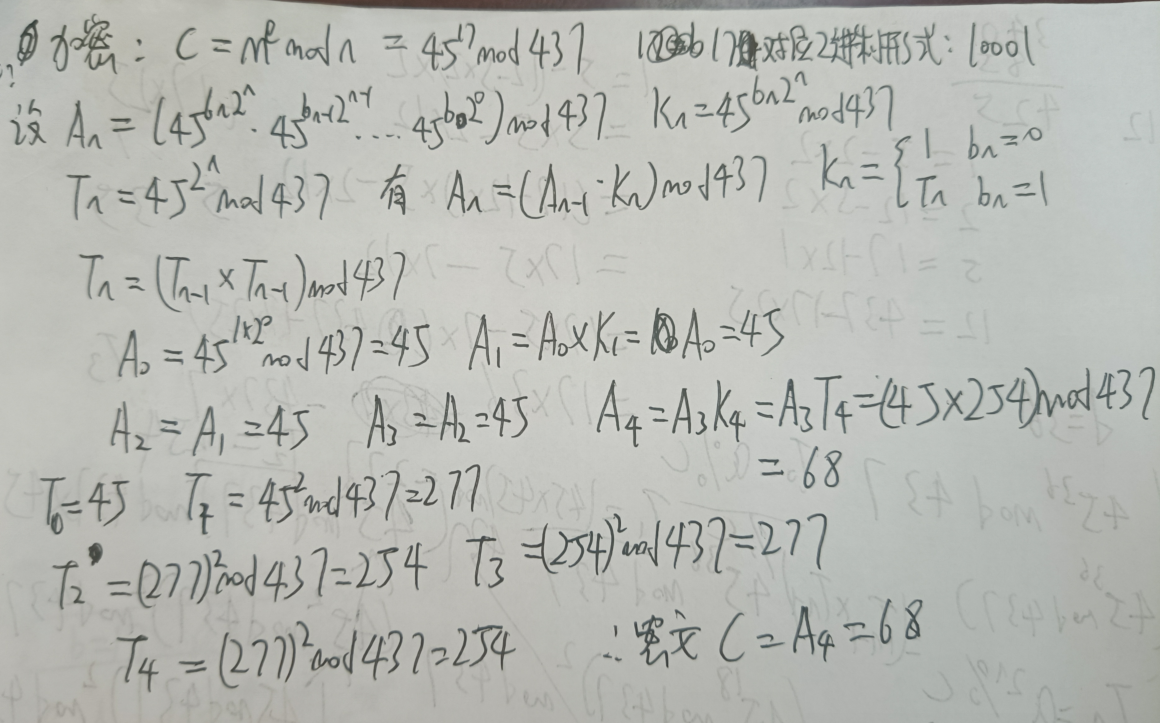 加密: C = mᵉ mod n = 45¹⁷ mod 437 17对应2进制用式: 10001
设 Aₙ = (45^{bₙ2ⁿ} · 45^{bₙ₋₁2ⁿ⁻¹} .... 45^{b₀2⁰}) mod 437 Kₙ = 45^{bₙ2ⁿ} mod 437
Tₙ = 45^{2ⁿ} mod 437 有 Aₙ = (Aₙ₋₁ · Kₙ) mod 437 Kₙ = { 1 bₙ = 0
Tₙ bₙ = 1
Tₙ = (Tₙ₋₁ × Tₙ₋₁) mod 437
A₀ = 45^{1×2⁰} mod 437 = 45 A₁ = A₀ × K₁ = A₀ = 45
A₂ = A₁ = 45 A₃ = A₂ = 45 A₄ = A₃K₄ = A₃T₄ = (45×254) mod 437
= 68
T₀ = 45 T₁ = 45² mod 437 = 277
T₂ = (277)² mod 437 = 254 T₃ = (254)² mod 437 = 277
T₄ = (277)² mod 437 = 254 ∴ 密文 C = A₄ = 68